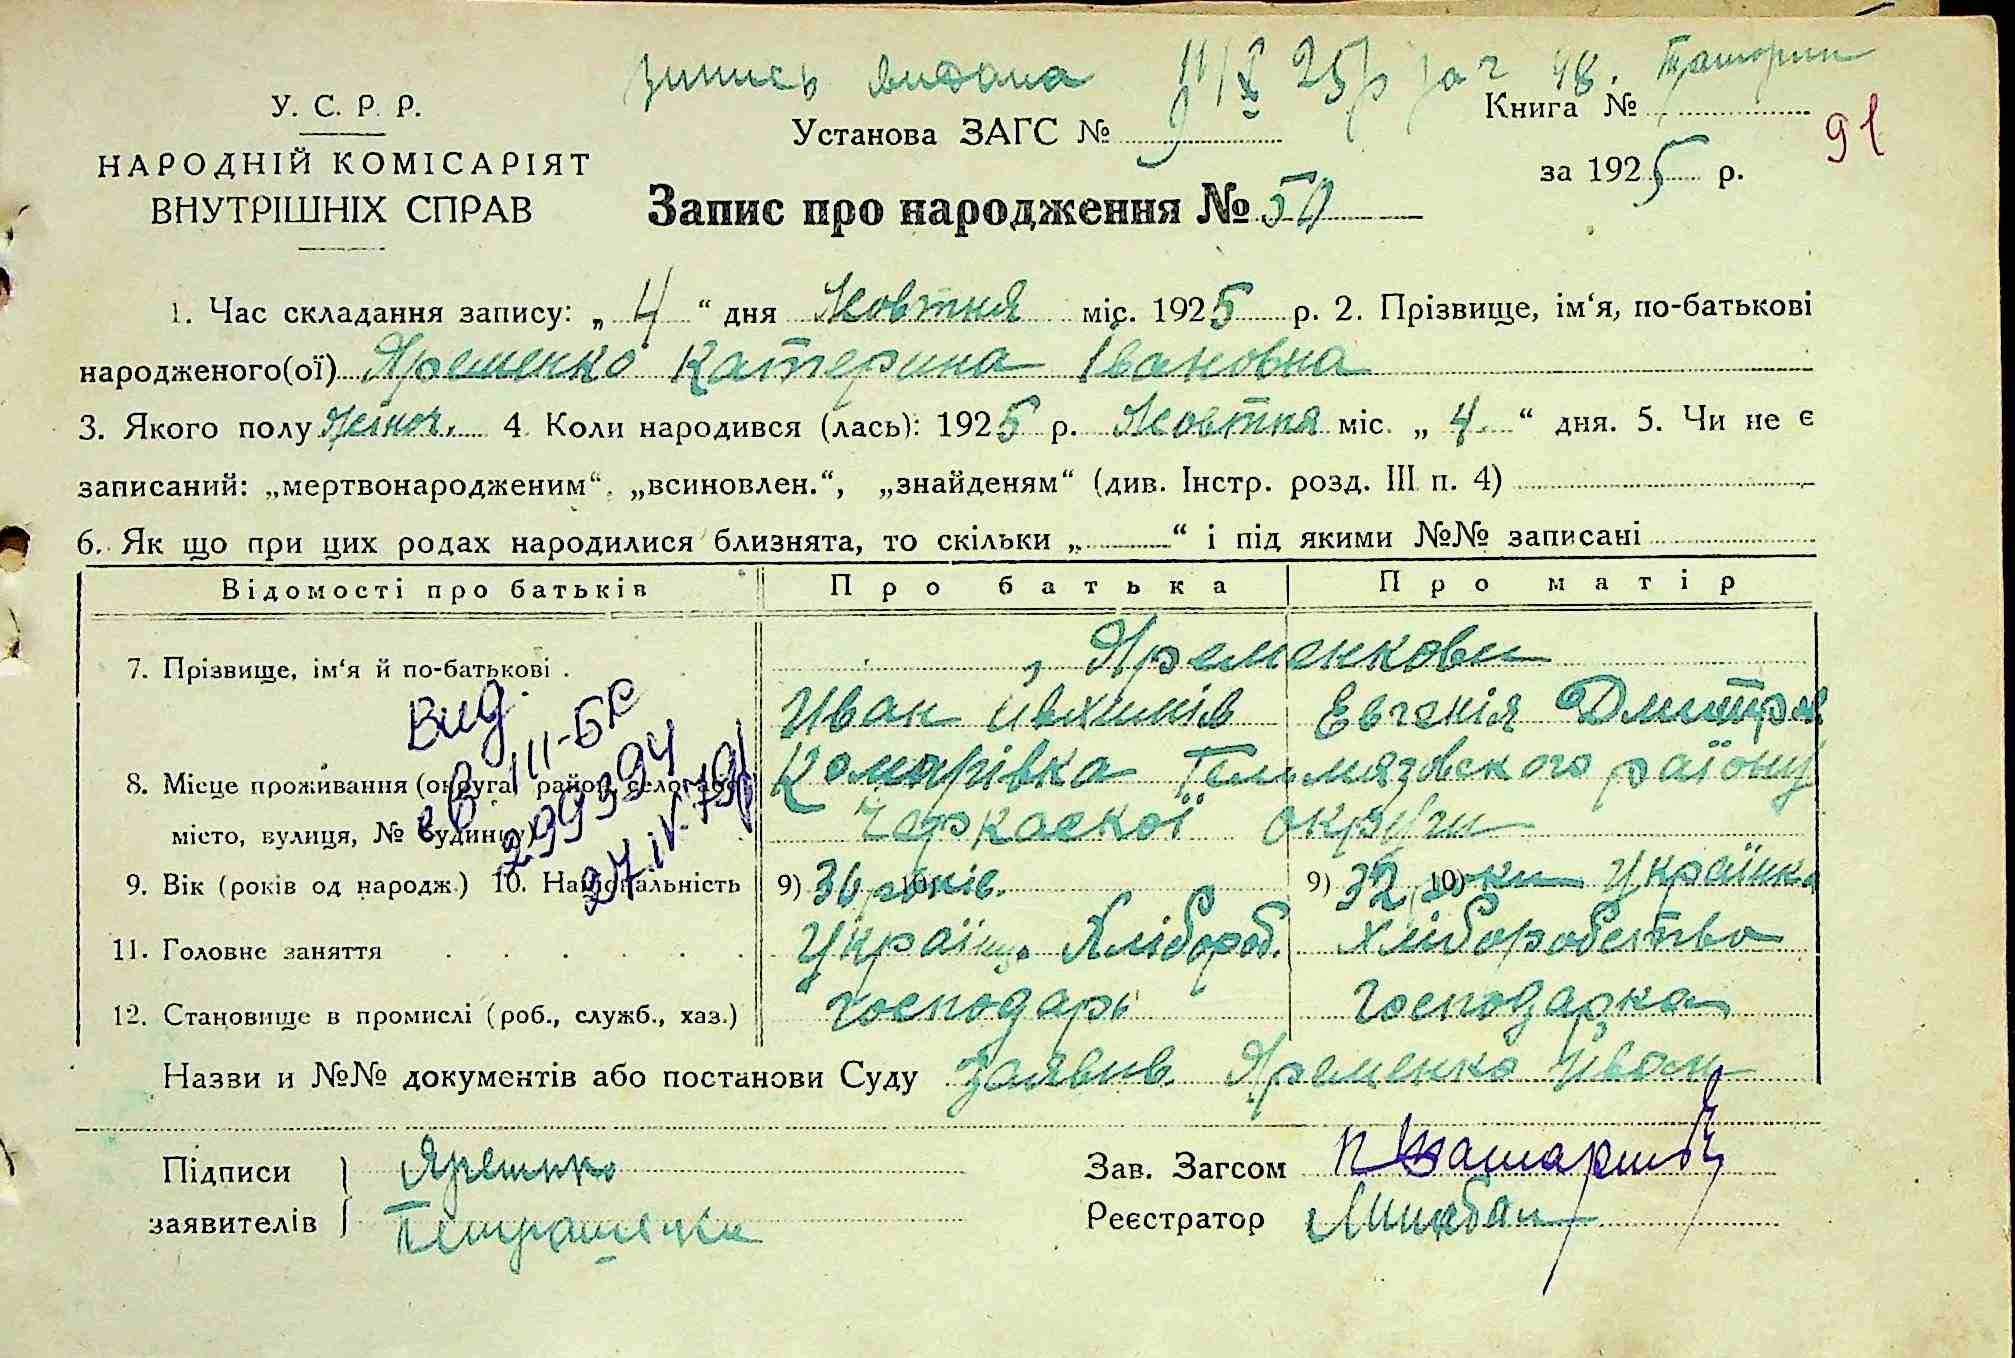 випись видана 9/X 25 р за ч 48.
У. С. Р. Р.
НАРОДНІЙ КОМІСАРІЯТ
ВНУТРІШНІХ СПРАВ
Установа ЗАГС №
Книга №
за 1925 р.
91
Запис про народження № 50
1. Час складання запису: „ 4 “ дня Жовтня міс. 1925 р. 2. Прізвище, ім‘я, по-батькові
народженого(ої) Яременко Катерина Івановна
3. Якого полу жіноч. 4. Коли народився (лась): 1925 р. Жовтня міс. „ 4 “ дня. 5. Чи не є
записаний: „мертвонародженим“, „всиновлен.“, „знайденям“ (див. Інстр. розд. III п. 4)
6. Як що при цих родах народилися близнята, то скільки „ “ і під якими №№ записані
Відомості про батьків Про батька Про матір
7. Прізвище, ім‘я й по-батькові . Яременкови
Иван Ивхимів Евгенія Дмитров
Вид.
св III-БК
299394
27.IV-79
8. Місце проживання (округа, район, село або Комарівка Гельмязовского району
місто, вулиця, № будинку) Черкаскої округи
9. Вік (років од народж.) 10. Національність 9) 36 років. 10) 9) 32 роки 10) Українка
11. Головне заняття Україн. Хлібороб. Хліборобство
12. Становище в промислі (роб., служб., хаз.) господарь господарка
Назви и №№ документів або постанови Суду Заявив. Яременко Иван
Підписи
заявителів
Яременко
Зав. Загсом
Реєстратор